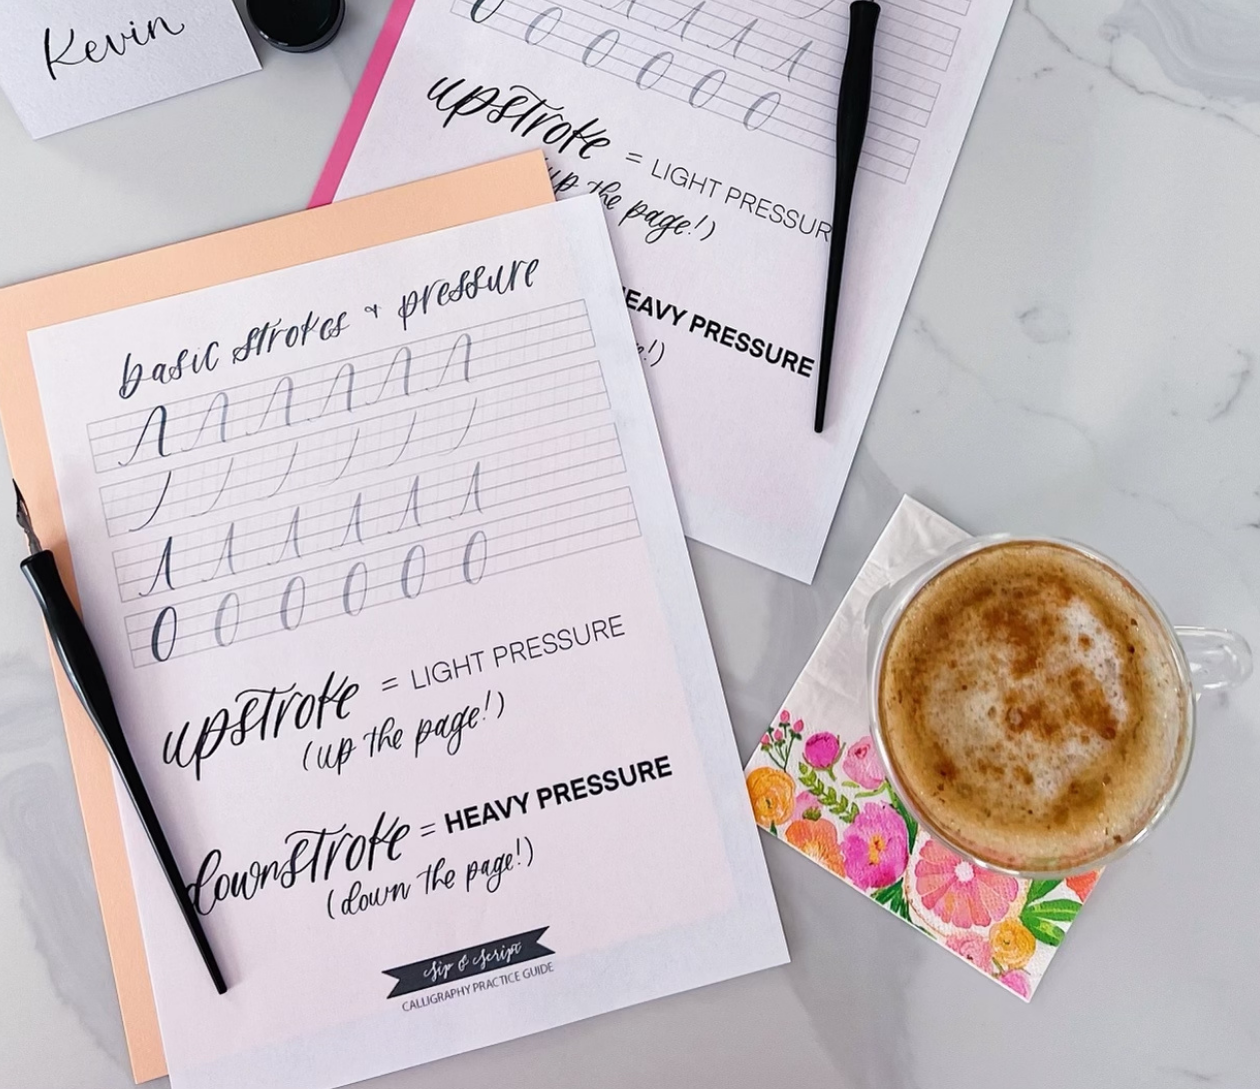 Kevin
upstroke = LIGHT PRESSUR
up the page!)
HEAVY PRESSURE
basic strokes & pressure
upstroke = LIGHT PRESSURE
(up the page!)
downstroke = HEAVY PRESSURE
(down the page!)
Sip & Script
CALLIGRAPHY PRACTICE GUIDE